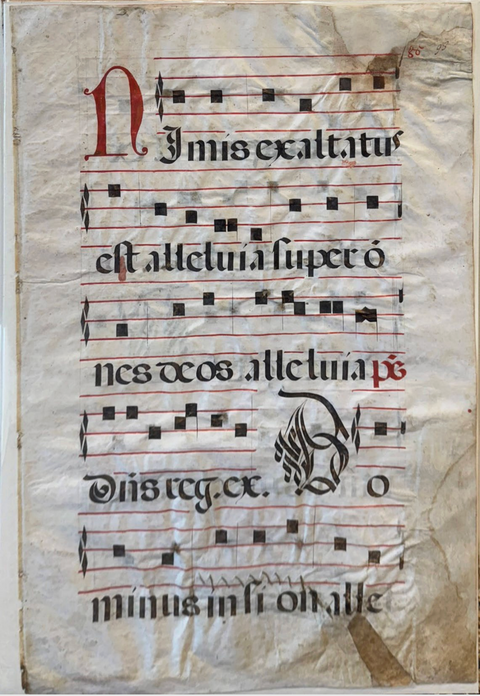 NImis exaltatus
est alleluia super ó
nes deos alleluia ps̄
Dn̄s reg. ex. Do
minus in si on alle